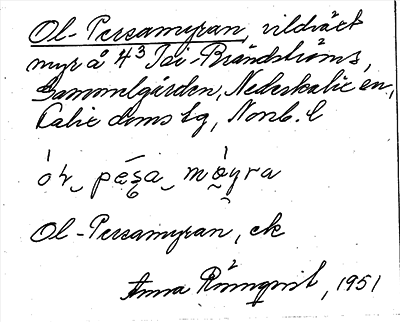 Ol-Persamyran, vildväxt
myr å 4³ Tei-Brändströms,
Gammelgården, Nederkalix en,
Kalix doms lg, Norrb. l
Ol-Persamyran, ek
Anna Rönnqvist, 1951